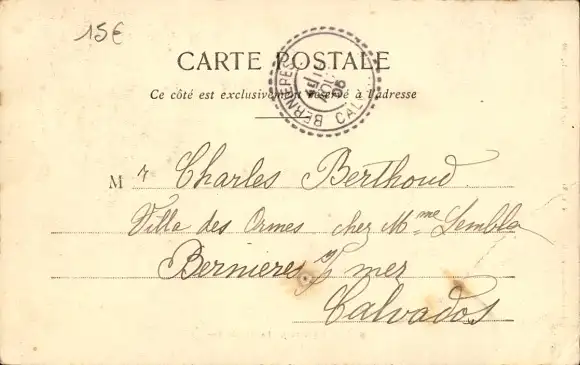 15€
CARTE POSTALE
Ce côté est exclusivement réservé à l'adresse
BERNIERES CAL
AOUT 05
M r Charles Berthoud
Villa des Ormes chez Mme
Bernieres s/ mer
Calvados